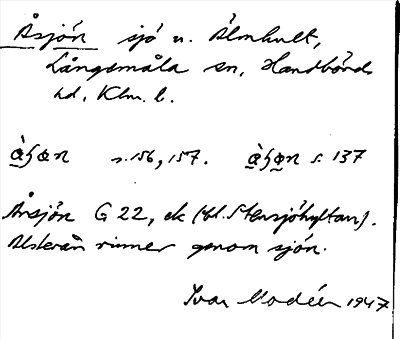 Åsjön sjö n. Älmhult,
Långemåla sn, Handbörds
hd, Klm. l.
s. 156, 157. s. 137
Årsjön G 22, ek (bl. Stensjöhyttan).
Alsterån rinner genom sjön.
Ivar Modéer 1947